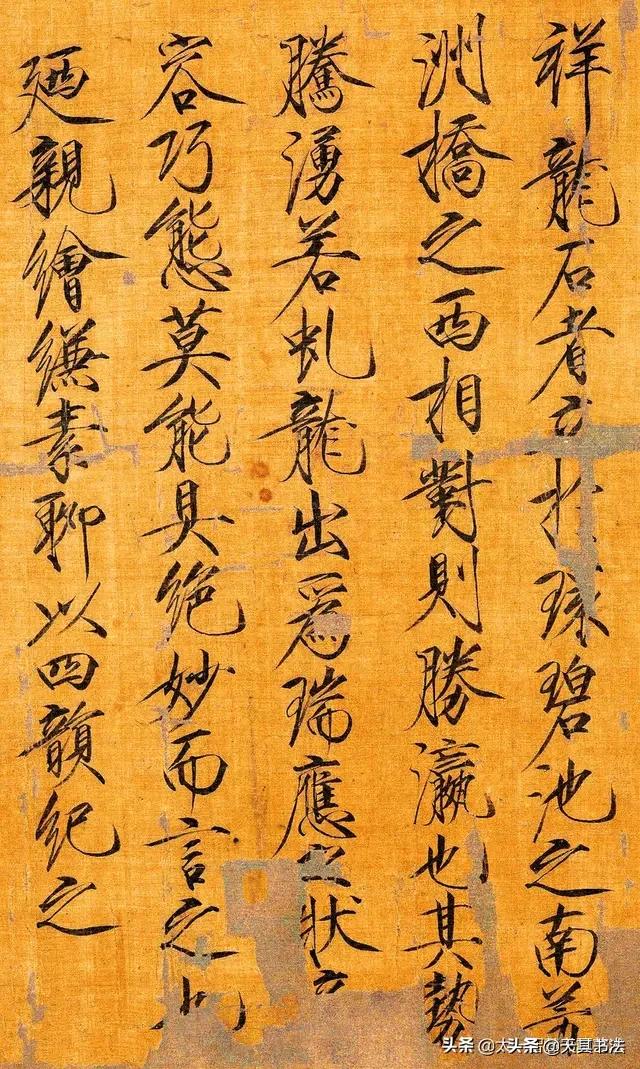 祥龍石者立於環碧池之南芳
洲橋之西相對則勝瀛也其勢
騰湧若虬龍出爲瑞應之狀奇
容巧態莫能具絶妙而言之也
廼親繪縑素聊以四韻紀之
头条 @太头条 @天真书法